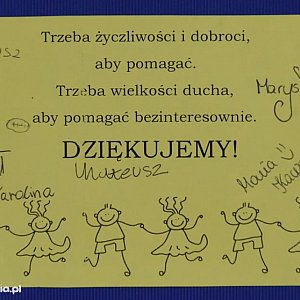 Trzeba życzliwości i dobroci,
aby pomagać.
Trzeba wielkości ducha,
aby pomagać bezinteresownie.
DZIĘKUJEMY!
Mateusz
Marys
Maria
Karolina
ia.pl